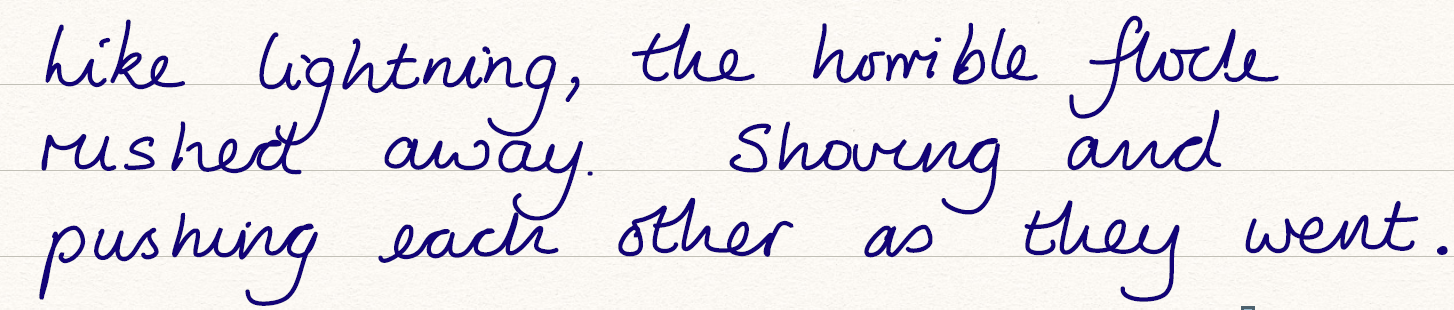 Like lightning, the horrible flock
rushed away. Shoving and
pushing each other as they went.